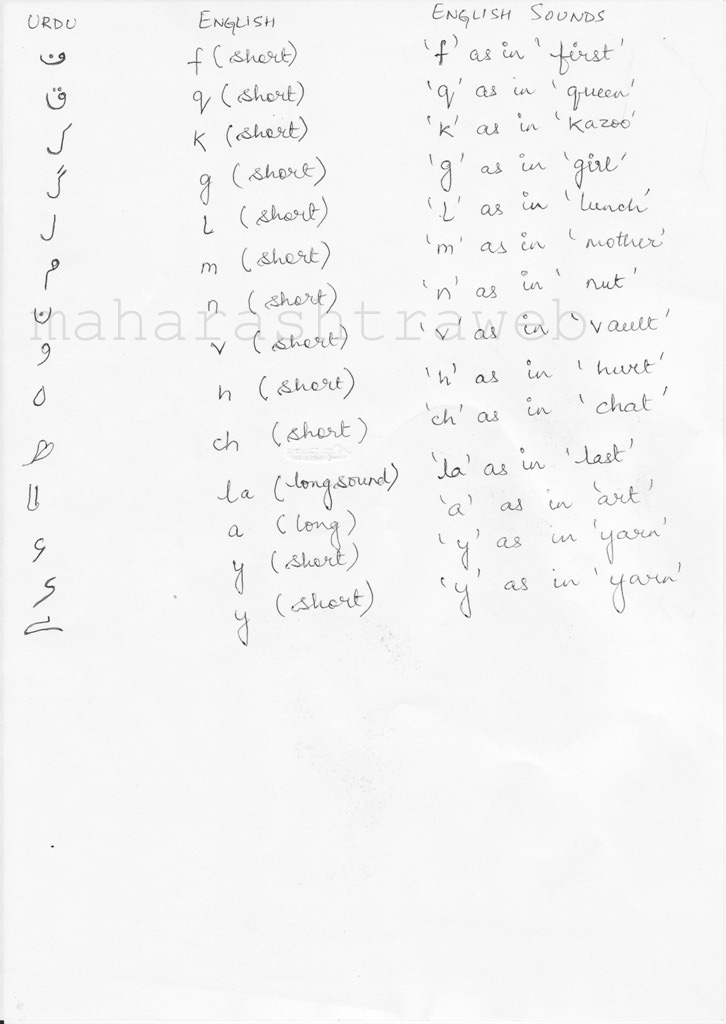 URDU ENGLISH ENGLISH SOUNDS
ف f (short) 'f' as in 'first'
ق q (short) 'q' as in 'queen'
ک k (short) 'k' as in 'kazoo'
گ g (short) 'g' as in 'girl'
ل L (short) 'L' as in 'lunch'
م m (short) 'm' as in 'mother'
ن n (short) 'n' as in 'nut'
maharashtraweb
و v (short) 'v' as in 'vault'
ہ h (short) 'h' as in 'hurt'
ch (short) 'ch' as in 'chat'
لا la (long sound) 'la' as in 'last'
ء a (long) 'a' as in 'art'
ی y (short) 'y' as in 'yarn'
ے y (short) 'y' as in 'yarn'